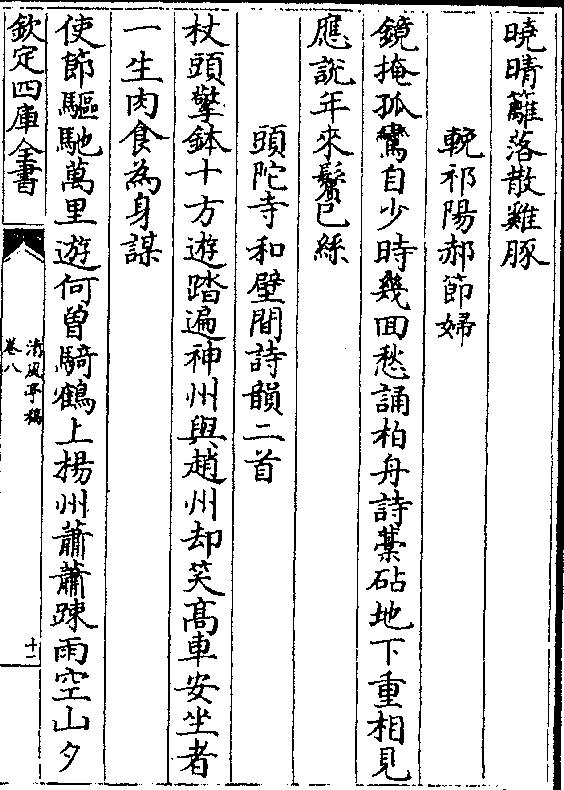 曉晴籬落散雞豚
輓祁陽郝節婦
鏡掩孤鸞自少時幾回愁誦柏舟詩藁砧地下重相見
應說年來鬢已絲
頭陀寺和壁間詩韻二首
杖頭擎鉢十方遊踏遍神州與趙州却笑髙車安坐者
一生肉食為身謀
使節驅馳萬里遊何曾騎鶴上揚州蕭蕭踈雨空山夕
欽定四庫全書
清風亭稿
卷八
十一